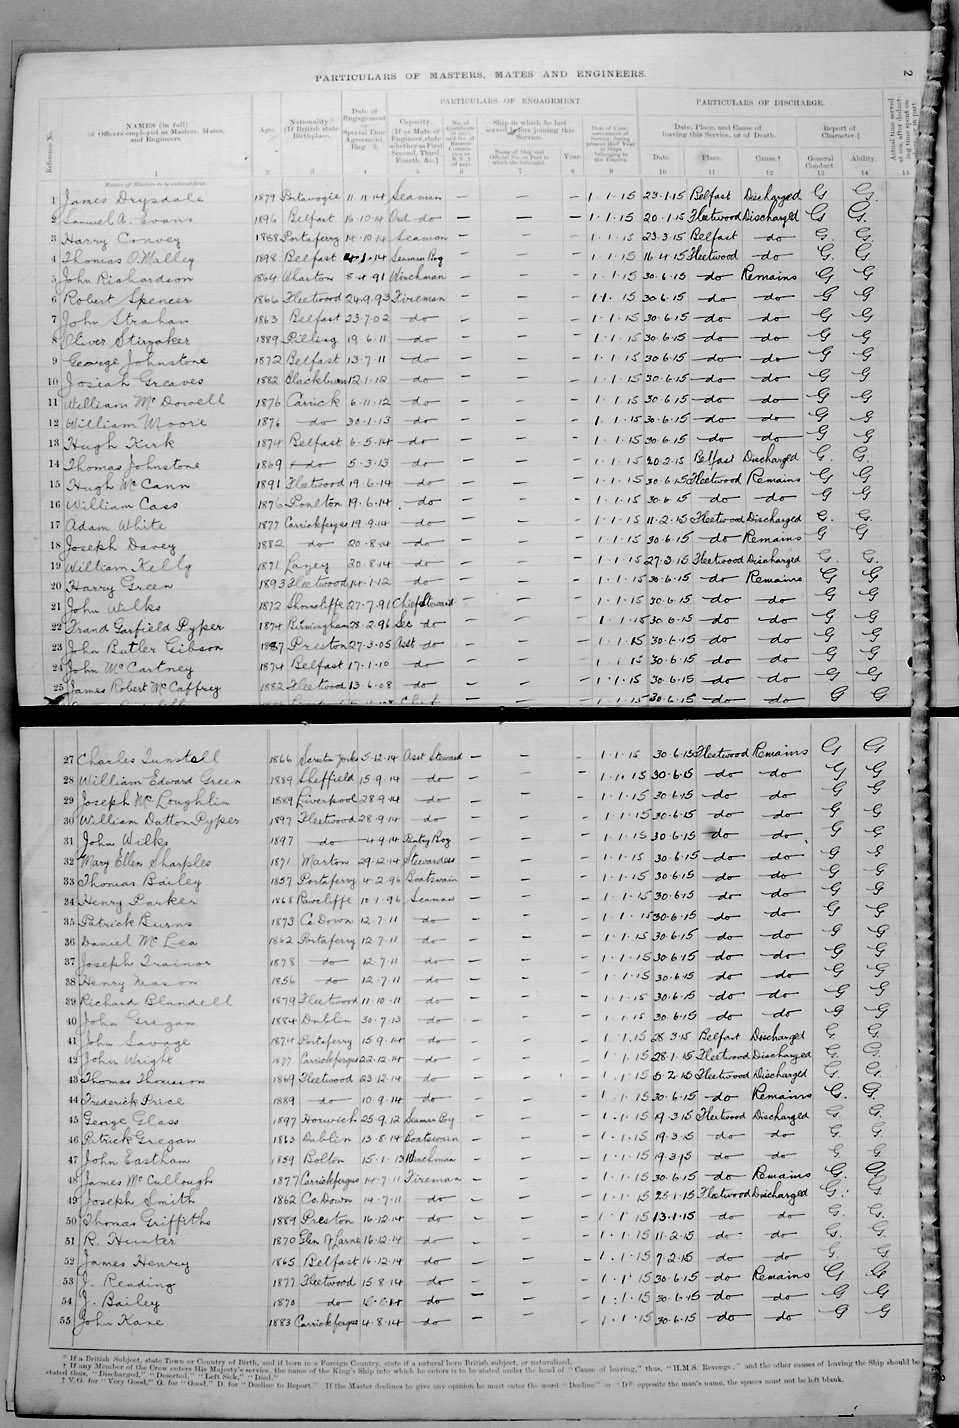 2
PARTICULARS OF MASTERS, MATES AND ENGINEERS.
PARTICULARS OF ENGAGEMENT. PARTICULARS OF DISCHARGE.
Reference No. NAMES (in full) of Officers employed as Masters, Mates, and Engineers. Age. Nationality.* (If British state Birthplace. Date of Engagement on Special Time Agreement, Eng. 3. Capacity. (If as Mate or Engineer, state whether as First Second, Third, Fourth, &c.) Ship in which he last served before joining this Service. Name of Ship and Official No. or Port to which she belonged. Year. Date, Place, and Cause of leaving this Service, or of Death. Date. Place. Cause.† Report of Character.‡ General Conduct. Ability.
1 2 3 4 5 6 7 8 9 10 11 12 13 14 15
Names of Masters to be entered first.
1 James Drysdale 1879 Portavogie 11.11.14 Seaman — — – 1.1.15 23.1.15 Belfast Discharged G G.
2 Samuel A. Evans 1896 Belfast 16.10.14 Ord. do — — – 1.1.15 20.1.15 Fleetwood Discharged G G.
3 Harry Convey 1888 Portaferry 14.10.14 Seaman — — – 1.1.15 23.3.15 Belfast do G. G.
4 Thomas O'Malley 1898 Belfast 1.14 Seaman Boy — — – 1.1.15 16.4.15 Fleetwood do G. G
5 John Richardson 1864 Wharton 8.4.91 Winchman — — – 1.1.15 30.6.15 do Remains G G
6 Robert Spencer 1866 Fleetwood 24.9.93 Fireman — — – 1.1.15 30.6.15 do do G G
7 John Strahan 1863 Belfast 23.7.02 do — — – 1.1.15 30.6.15 do do G G
8 Oliver Stirzaker 1889 Pilling 19.6.11 do — — – 1.1.15 30.6.15 do do G G
9 George Johnstone 1872 Belfast 13.7.11 do — — – 1.1.15 30.6.15 do do G G
10 Josiah Greaves 1882 Blackburn 12.1.12 do — — – 1.1.15 30.6.15 do do G G
11 William McDowell 1876 Carrick 6.11.12 do — — – 1.1.15 30.6.15 do do G G
12 William Moore 1876 do 30.1.13 do — — – 1.1.15 30.6.15 do do G G
13 Hugh Kirk 1874 Belfast 6.5.14 do — — – 1.1.15 30.6.15 do do G G
14 Thomas Johnstone 1869 do 5.3.13 do — — – 1.1.15 20.2.15 Belfast Discharged G. G.
15 Hugh McCann 1891 Fleetwood 19.6.14 do — — – 1.1.15 30.6.15 Fleetwood Remains G G
16 William Cass 1876 Poulton 19.6.14 do — — – 1.1.15 30.6.15 do do G G
17 Adam White 1877 Carrickfergus 19.9.14 do — — – 1.1.15 11.2.15 Fleetwood Discharged G. G.
18 Joseph Davey 1882 do 20.8.14 do — — – 1.1.15 30.6.15 do Remains G G
19 William Kelly 1871 Laxey 20.8.14 do — — – 1.1.15 27.3.15 Fleetwood Discharged G. G.
20 Harry Green 1893 Fleetwood 14.1.12 do — — – 1.1.15 30.6.15 do Remains G G
21 John Wilks 1872 Shorncliffe 27.7.91 Chief Steward — — – 1.1.15 30.6.15 do do G G
22 Frand Garfield Pyper 1874 Birmingham 28.2.96 Sec do — — – 1.1.15 30.6.15 do do G G
23 John Butler Gibson 1887 Preston 27.3.05 Asst do — — – 1.1.15 30.6.15 do do G G
24 John McCartney 1874 Belfast 17.1.10 do — — – 1.1.15 30.6.15 do do G G
25 James Robert McCaffrey 1882 Fleetwood 13.6.08 do — — – 1.1.15 30.6.15 do do G G
Chief — — – 1.1.15 30.6.15 do do G G
27 Charles Tunstall 1866 Scruton Yorks 5.12.14 Asst Steward — — – 1.1.15 30.6.15 Fleetwood Remains G G
28 William Edward Green 1889 Sheffield 15.9.14 do — — – 1.1.15 30.6.15 do do G G
29 Joseph McLoughlin 1889 Liverpool 28.9.14 do — — – 1.1.15 30.6.15 do do G G
30 William Dutton Pyper 1897 Fleetwood 28.9.14 do — — – 1.1.15 30.6.15 do do G G
31 John Wilks 1897 do 4.9.14 Pantry Boy — — – 1.1.15 30.6.15 do do G G
32 Mary Ellen Sharples 1871 Marton 29.12.14 Stewardess — — – 1.1.15 30.6.15 do do G G
33 Thomas Bailey 1857 Portaferry 4.2.96 Boatswain — — – 1.1.15 30.6.15 do do G G
34 Henry Parker 1868 Rawcliffe 10.1.96 Seaman — — – 1.1.15 30.6.15 do do G G
35 Patrick Burns 1873 Co. Down 12.7.11 do — — – 1.1.15 30.6.15 do do G G
36 Daniel McLea 1862 Portaferry 12.7.11 do — — – 1.1.15 30.6.15 do do G G
37 Joseph Trainor 1878 do 12.7.11 do — — – 1.1.15 30.6.15 do do G G
38 Henry Mason 1856 do 12.7.11 do — — – 1.1.15 30.6.15 do do G G
39 Richard Blundell 1879 Fleetwood 11.10.11 do — — – 1.1.15 30.6.15 do do G G
40 John Gregan 1884 Dublin 30.7.13 do — — – 1.1.15 30.6.15 do do G G
41 John Savage 1874 Portaferry 15.9.14 do — — – 1.1.15 28.3.15 Belfast Discharged G. G.
42 John Wright 1877 Carrickfergus 22.12.14 do — — – 1.1.15 28.1.15 Fleetwood Discharged G. G.
43 Thomas Thomson 1869 Fleetwood 23.12.14 do — — 1.1.15 5.2.15 Fleetwood Discharged G. G.
44 Frederick Price 1889 do 10.9.14 do — — – 1.1.15 30.6.15 do Remains G. G.
45 George Glass 1897 Horwich 25.9.12 Seaman Boy — — – 1.1.15 19.3.15 Fleetwood Discharged G. G.
46 Patrick Gregan 1863 Dublin 13.8.14 Boatswain — — – 1.1.15 19.3.15 do do G. G.
47 John Eastham 1859 Bolton 15.1.13 Winchman — — – 1.1.15 19.3.15 do do G G
48 James McCullough 1877 Carrickfergus 14.7.11 Fireman — — – 1.1.15 30.6.15 do Remains G. G
49 Joseph Smith 1862 Co. Down 14.7.11 do — — – 1.1.15 25.1.15 Fleetwood Discharged G. G
50 Thomas Griffiths 1889 Preston 16.12.14 do — — – 1.1.15 13.1.15 do do G. G.
51 R. Hunter 1870 Glen Larne 16.12.14 do — — – 1.1.15 11.2.15 do do G. G.
52 James Henry 1865 Belfast 16.12.14 do — — – 1.1.15 7.2.15 do do G. G.
53 J. Reading 1877 Fleetwood 15.8.14 do — — – 1.1.15 30.6.15 do Remains G G
54 J. Bailey 1870 do 15.8.14 do — — – 1.1.15 30.6.15 do do G G
55 John Kane 1883 Carrickfergus 4.8.14 do — — – 1.1.15 30.6.15 do do G G
* If a British Subject, state Town or Country of Birth, and if born in a Foreign Country, state if a natural born British subject, or naturalized.
† If any Member of the Crew enters His Majesty's service, the name of the King's Ship into which he enters is to be stated under the head of "Cause of leaving," thus, "H.M.S. Revenge;" and the other causes of leaving the Ship should be
stated thus, "Discharged," "Deserted," "Left Sick," "Died."
‡ V.G. for "Very Good," G. for "Good," D. for "Decline to Report." If the Master declines to give any opinion he must enter the word "Decline" or "D" opposite the man's name, the spaces must not be left blank.